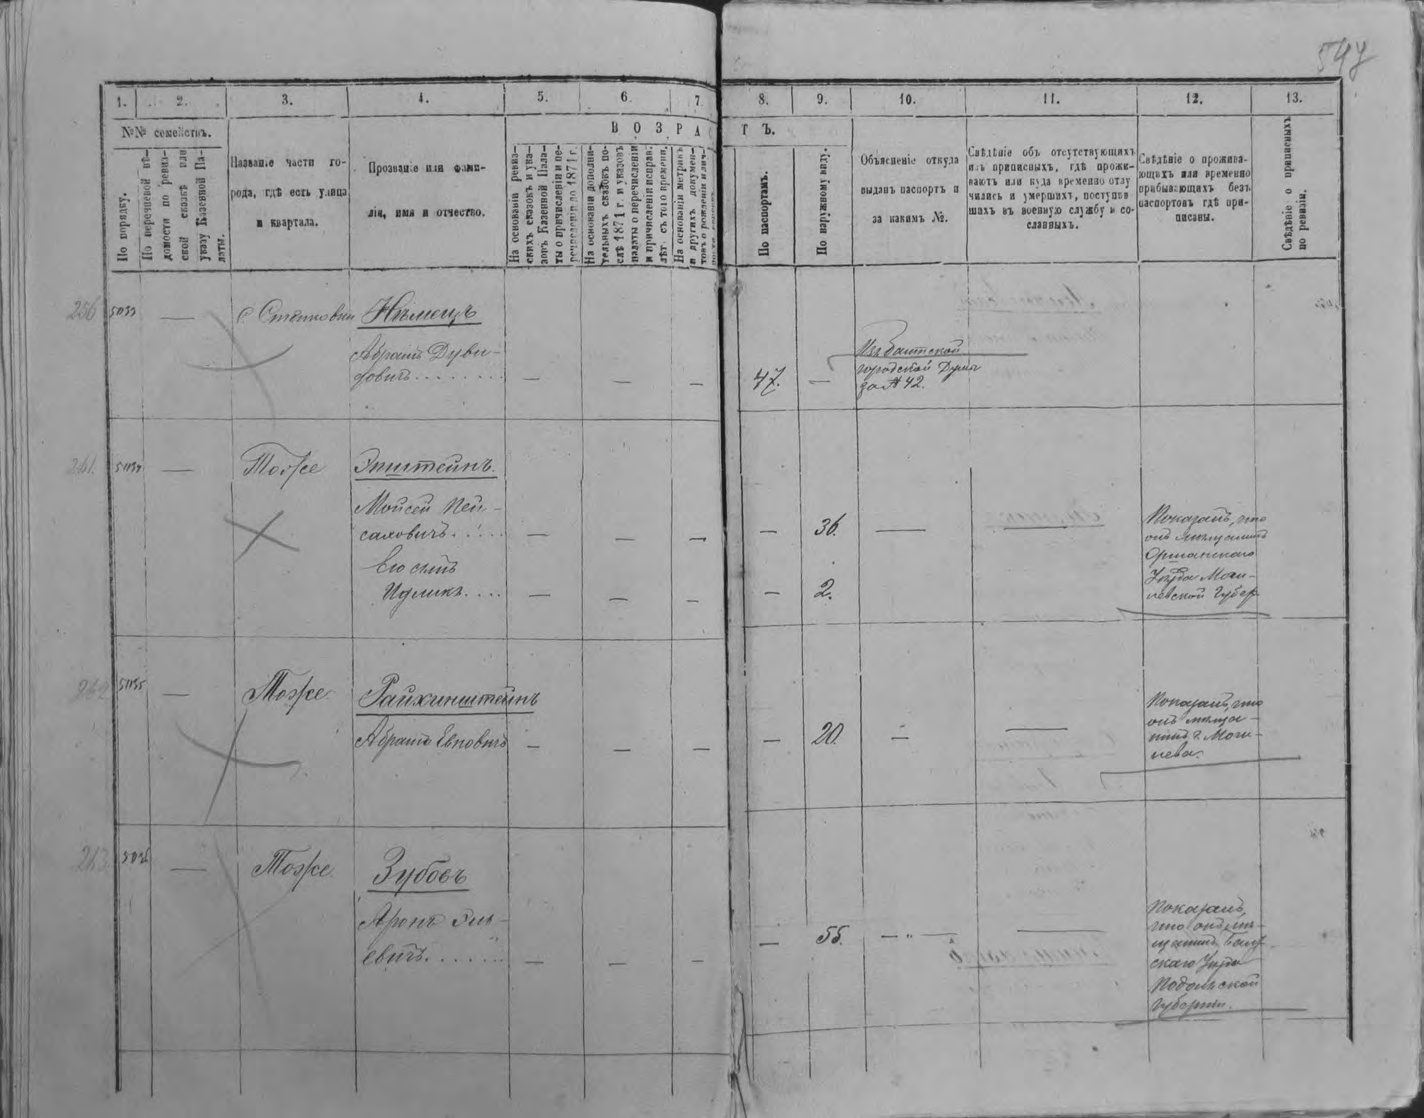 547
1.
2.
3.
4.
5.
6.
7
8.
9.
10.
11.
12.
13.
№№ семействъ.
По порядку.
По перечневой вѣ-
домости по ревиз-
ской сказкѣ или
указу Казенной Па-
латы.
Названіе части го-
рода, гдѣ есть улица
и квартала.
Прозваніе или фами-
лія, имя и отчество.
ВОЗРАС
ТЪ.
На основаніи ревиз-
скихъ сказокъ и ука-
зовъ Казенной Пала-
ты о причисленіи и пе-
речисленіи до 1871 г.
На основаніи дополни-
тельныхъ сказокъ по-
слѣ 1871 г. и указовъ
палаты о перечисленіи
и причисленіи исправ.
лѣт. съ того времени.
На основаніи метрикъ
и другихъ докумен-
товъ о рожденіи или
По паспортамъ.
По наружному виду.
Объясненіе откуда
выданъ паспортъ и
за какимъ №.
Свѣдѣніе объ отсутствующихъ
изъ приписныхъ, гдѣ прожи-
ваютъ или куда временно отлу
чились и умершихъ, поступив
шихъ въ военную службу и со-
сланныхъ.
Свѣдѣніе о прожива-
ющихъ или временно
прибывающихъ безъ
паспортовъ гдѣ при-
писаны.
Свѣдѣніе о приписныхъ
по ревизіи.
256
5033
—
Нѣмецъ
Абрамъ Дуви-
довичъ........
— — — 47. —
Изъ Балтской
городской Думы
за № 42.
261.
—
Тоже
Эпштейнъ.
Мойсей Пей-
саховичъ.....
— — — — 36. — —
Его сынъ
Ицликъ....
— — — — 2.
Показалъ, что
онъ мѣщанинъ
Оршанскаго
Уѣзда Моги-
левской Губер.
262
—
Тоже
Райхинштейнъ
Абрамъ
— — — — 20. — —
Показалъ, что
онъ мѣща-
нинъ г. Моги-
лева.
263
5036
—
Тоже
Зубовъ
Аронъ Эль-
евичъ.......
— — — — 55. — " — —
Показалъ,
что онъ мѣ-
щанинъ
скаго Уѣзда
Подольской
Губерніи.